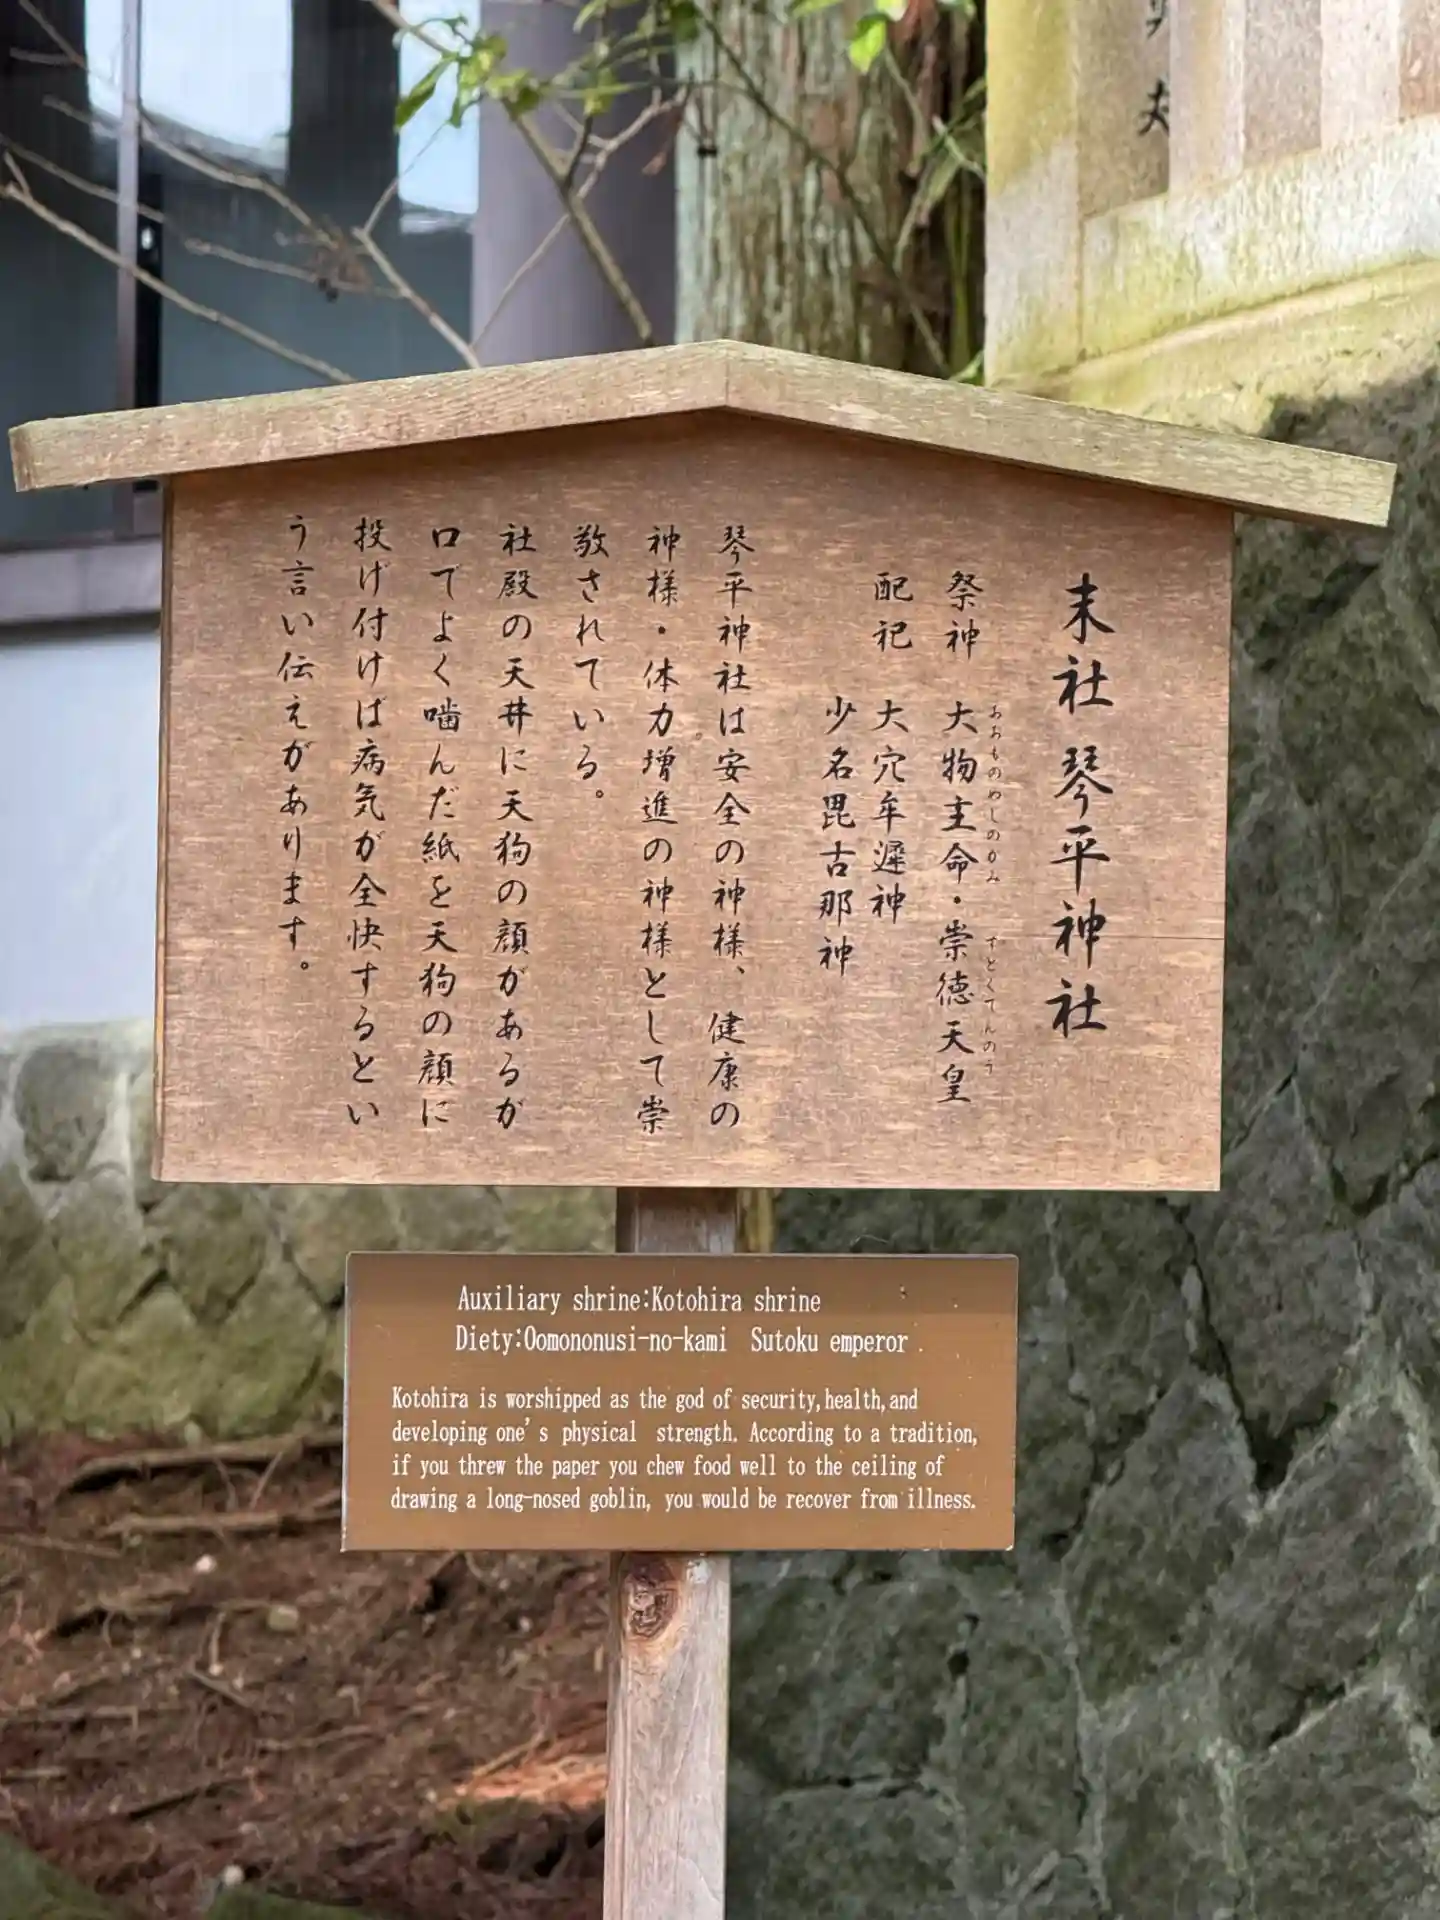 末社 琴平神社
祭神 大物主命・崇徳天皇
おおものぬしのかみ すとくてんのう
配祀 大穴牟遅神
少名毘古那神
琴平神社は安全の神様、健康の
神様・体力増進の神様として崇
敬されている。
社殿の天井に天狗の顔があるが
口でよく噛んだ紙を天狗の顔に
投げ付けば病気が全快するとい
う言い伝えがあります。
Auxiliary shrine:Kotohira shrine
Diety:Oomononusi-no-kami Sutoku emperor
Kotohira is worshipped as the god of security,health,and
developing one's physical strength. According to a tradition,
if you threw the paper you chew food well to the ceiling of
drawing a long-nosed goblin, you would be recover from illness.